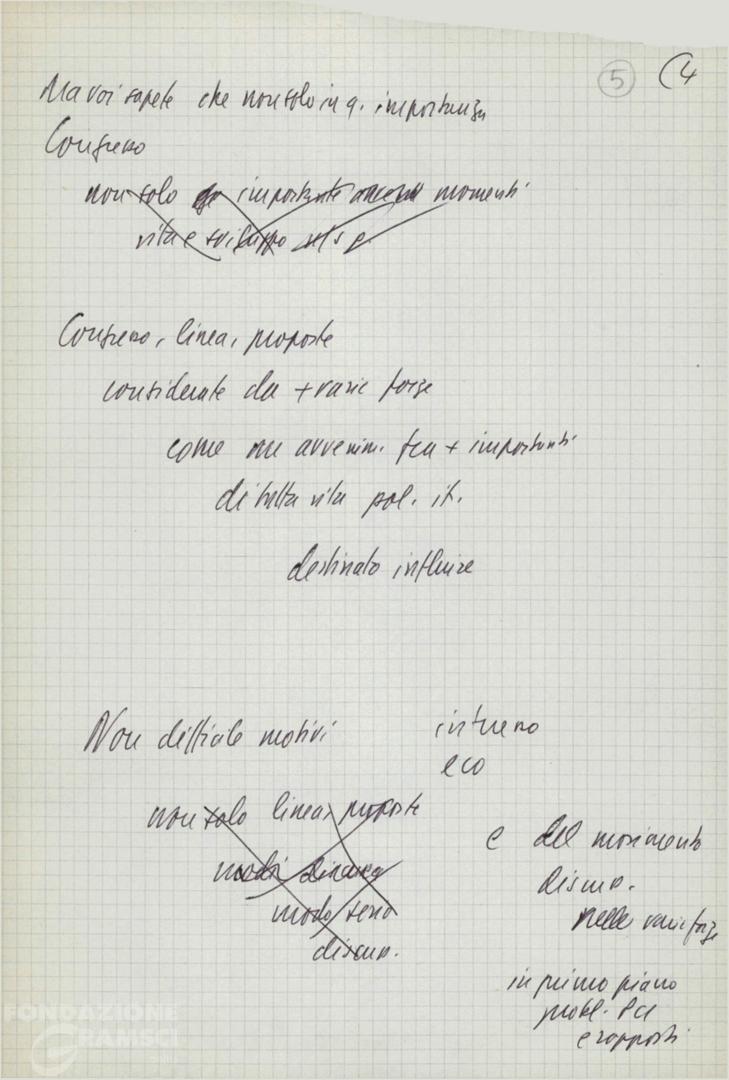 5 (4
Ma voi sapete che non solo in q. importanza
Congresso
non solo importante momenti
vita e sviluppo
Congresso, linea, proposte
considerate da + varie forze
come un avvenim. fra + importanti
di tutta vita pol. it.
destinato influire
Non difficile motivi interesse
eco
non solo linea, proposte
modo serio
discus.
e del movimento
discus.
nelle varie forze
in primo piano
probl. PCI
e rapporti
FONDAZIONE
GRAMSCI